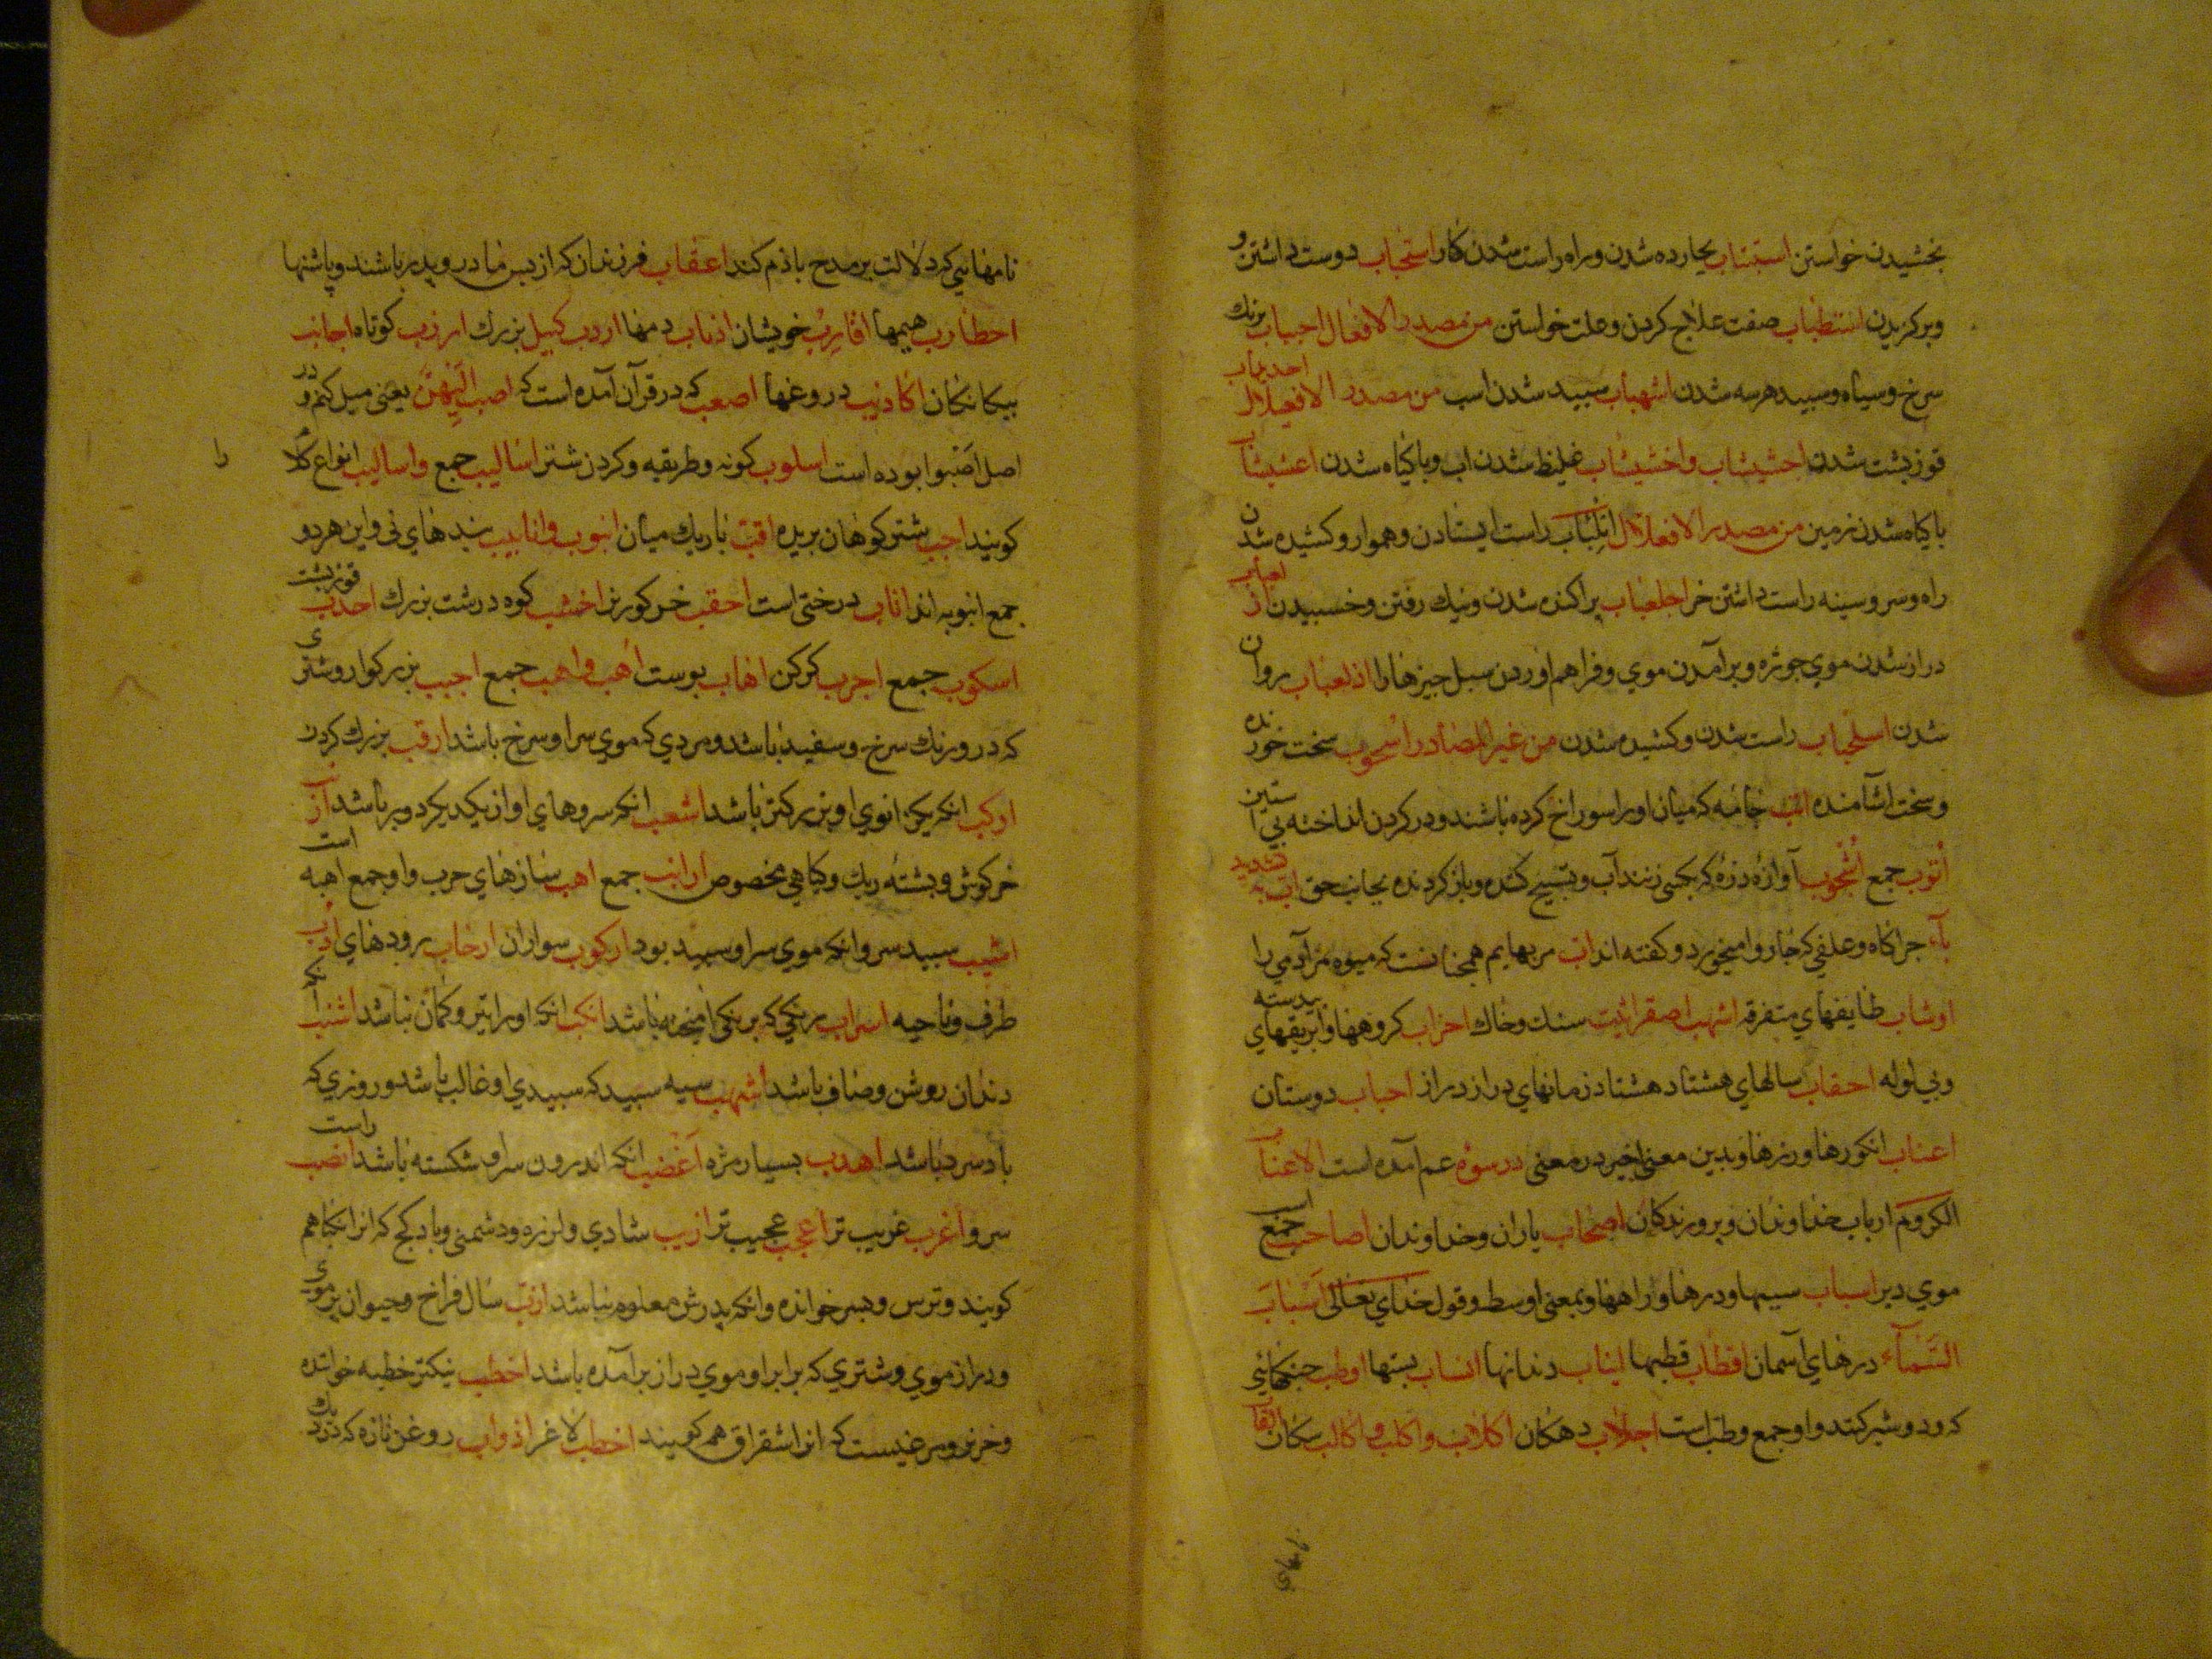 بخشیدن خواستن استتباب بجارده شدن و راه راست شدن کار استحباب دوست داشتن و
وبرکزیدن استطباب صفت علاج کردن وعلت خواستن من مصدر الافعال احبباب برنك
سرخ وسیاه وسپید هرسه شدن اشهباب سپید شدن اسب من مصدر الافعیلال احدیداب
قوز پشت شدن اجشیشاب واخشیشاب غلیظ شدن اب وباکیاه شدن اعشیشاب
باکیاه شدن زمین من مصدر الافعلال اتلئباب راست ایستادن وهموار وکشیده شدن
راه وسر وسینه راست داشتن خر اجلعباب پراکنده شدن ونیك رفتن وخسبیدن از لعباب
دراز شدن موی جوژه وبرآمدن موی وفراهم اوردن سیل چیزها را اذلعباب روان
شدن اسلحباب راست شدن وکشیده شدن من غیر المصادر اسحوب سخت خورنده
وسخت آشامنده اتب جامه که میان اورا سوراخ کرده باشند ودر کردن انداخته بی استین
اتوب جمع اثجوب آوازه زه که بکسی زنند آب وبسیج کننده وباز کردنده بجانب حق اب بتشدید
باء چراکاه وعلفی که چاروا میخورد وکفته اند اب مر بهایم همچنانست که میوه مر آدمی را
اوشاب طایفهای متفرقه اشهب اصقر اثیب سنك وخاك احزاب کروهها وابریقهای بیدسته
وبی لوله احقاب سالهای هشتاد هشتاد زمانهای دراز دراز احباب دوستان
اعناب انکورها ورزها وبدین معنی اخیر در معنی در سوره عم آمده است الاعناب
الکروم ارباب خداوندان وپرورندکان اصحاب یاران وخداوندان اصاحب جمع اسب
موی دبر اسباب سببها ودرها وراهها وبمعنی اوسط وقول خدای تعالی اسباب
السماء درهای آسمان اقطاب قطبها انیاب دندانها انساب نسبها اوطب خیکهائی
که درو شیر کنند واو جمع وطب است اجلاب دهکان اکلاب واکلب واکالب سکان القاب
نامهای
نامهایی که دلالت بر مدح یا ذم کند اعقاب فرزندان که از پس مادر وپدر باشند وپاشنها
احطاب هیمها اقارب خویشان اذناب دمها اردب کیل بزرك ارزب کوتاه اجانب
بیکانکان اکاذیب دروغها اصعب که در قرآن آمده است که اصب الیهن یعنی میل کنم ودر
اصل اصبوا بوده است اسلوب کونه وطریقه وکردن شتر اسالیب جمع واسالیب انواع کلام را
کویند اجب شتر کوهان بریده اقب باریك میان انبوب وانابیب بندهای نی واین هردو
جمع انبوبه اند اثاب درختی است احقب خر کور نر اخشب کوه درشت بزرك احدب قوزپشت
اسکوب جمع اجرب کرکن اهاب پوست اهب واهب جمع اجبب بزرکوار وشتری
که درو رنك سرخ وسفید باشد ومردی که موی سر او سرخ باشد ارقب بزرك کردن
ارکب انکه یك زانوی او بزرکتر باشد اشعب انکه سروهای او از یکدیکر دور باشد ارنب
خرکوش وپشته ریك وکیاهی مخصوص ارانب جمع اهب سازهای حرب واو جمع اهبه است
اشیب سپید سر وانکه موی سر او سپید بود ارکوب سواران ارحاب رودهای ادب
طرف وناحیه اسراب رنکی که برنکی آمیخته باشد انکب انکه اورا تیر وکمان نباشد اشنب انکه
دندان روشن وصاف باشد اشهب سیه سپید که سپیدی او غالب باشد وروزی که
باد سرد باشد اهدب بسیار مژه اغضب انکه اندرون سر او شکسته باشد انصب راست
سرو اغرب غریب تر اعجب عجیب تر ازیب شادی ولرزه ودشمنی وباد کج که انرا نکبا هم
کویند وترس وپسر خوانده وانکه پدرش معلوم نباشد ازب سال فراخ وحیوان پر موی
ودراز موی وشتری که برابر او موی دراز برآمده باشد اخطب نیکتر خطبه خوانده
وخر نر ومرغیست که انرا شقراق هم کویند اخطب لاغر اذواب روغن تازه که نزدیك